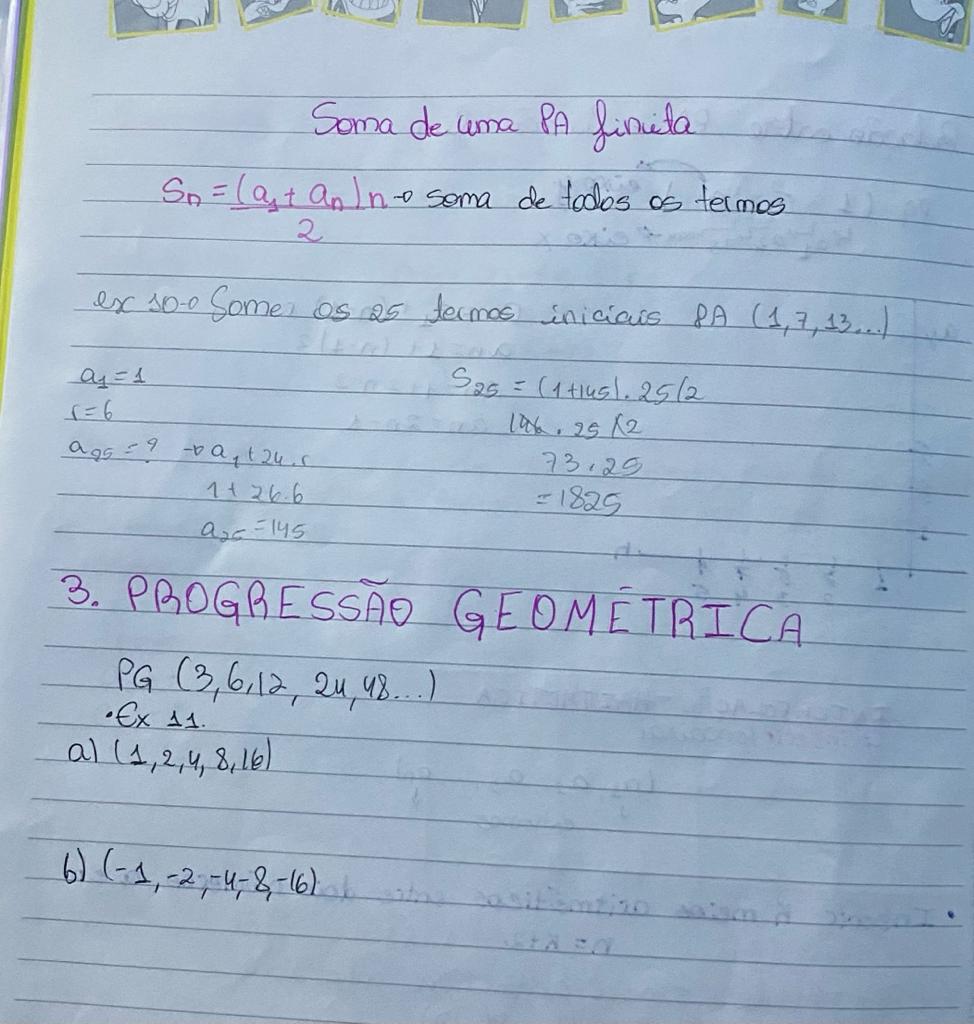 Soma de uma PA finita
Sn = (a1 + an)n → soma de todos os termos
2
ex 10→ Some os 25 termos iniciais PA (1,7,13...)
a1 = 1
r = 6
a25 = ? → a1 + 24.r
1 + 24.6
a25 = 145
S25 = (1+145).25/2
146.25/2
73.25
= 1825
3. PROGRESSÃO GEOMÉTRICA
PG (3,6,12, 24,48...)
•Ex 11.
a) (1,2,4,8,16)
b) (-1,-2,-4,-8,-16)